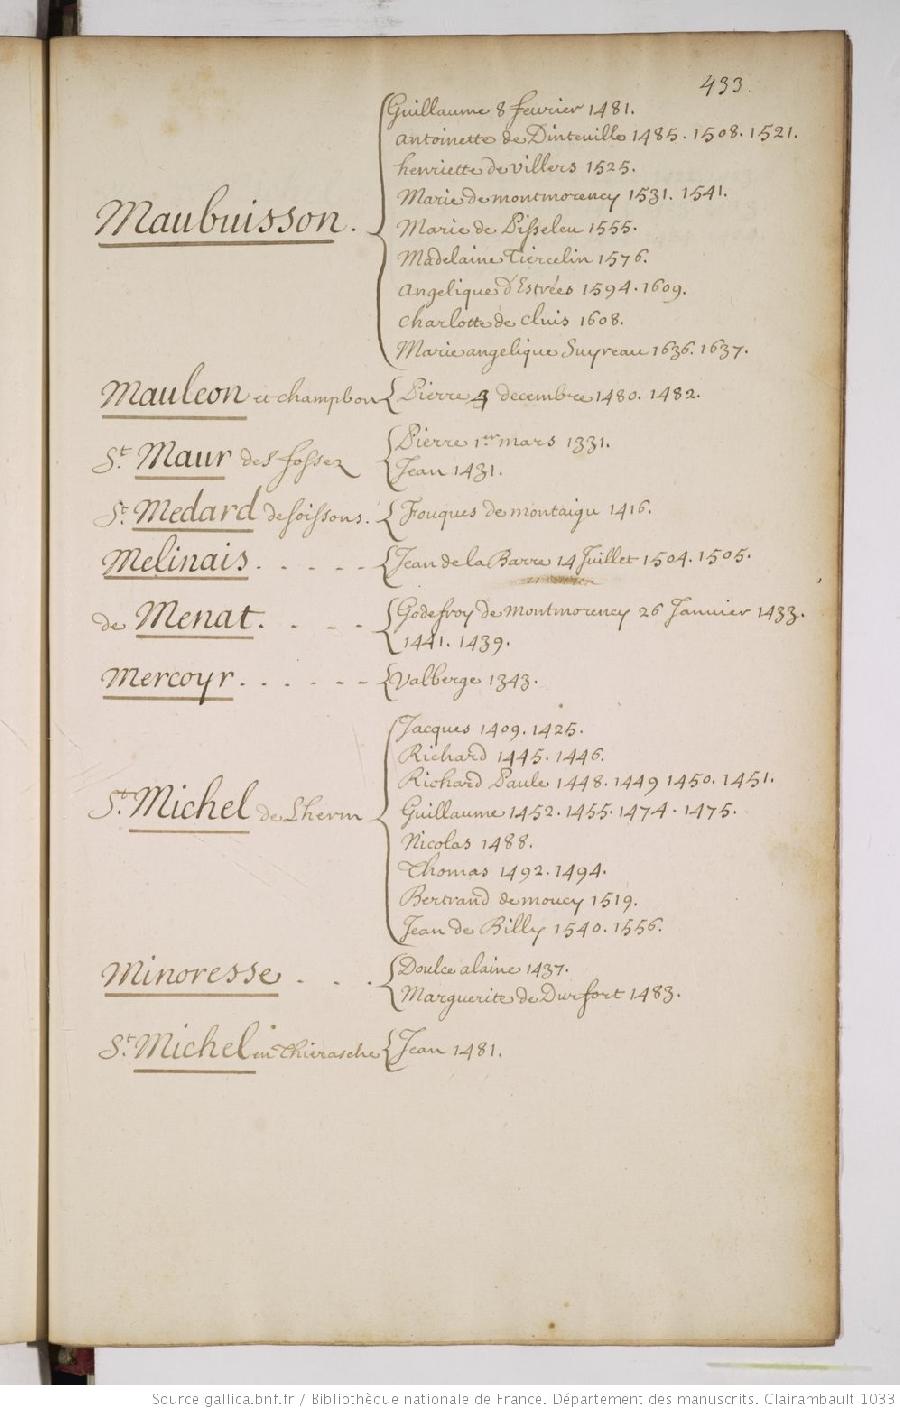 433.
Maubuisson.
Guillaume 8 fevrier 1481.
antoinette de Dinteville 1485. 1508. 1521.
henriette de villers 1525.
Marie de montmorency 1531. 1541.
Marie de Pisseleu 1555.
Madelaine Tiercelin 1576.
angelique d'Estrées 1594. 1609.
charlotte de cluis 1608.
Marie angelique Suyreau 1636. 1637.
Mauleon et champbon Pierre 4 decembre 1480. 1482.
St. Maur des fossez
Pierre 1er mars 1331.
Jean 1431.
St. Medard de soissons. Fouques de montaigu 1416.
Melinais . . . . . Jean de la Barre 14 Juillet 1504. 1505.
de Menat. . . .
Godefroy de Montmorency 26 Janvier 1433.
1441. 1439.
Mercoyr . . . . . . Valberge 1343.
St. Michel de Lherm
Jacques 1409. 1425.
Richard 1445. 1446.
Richard Paule 1448. 1449 1450. 1451.
Guillaume 1452. 1455. 1474. 1475.
Nicolas 1488.
Thomas 1492. 1494.
Bertrand de moucy 1519.
Jean de Billy 1540. 1556.
Minoresse . . .
Doulce alaine 1437.
Marguerite de Durfort 1483.
St. Michel en Thierasche Jean 1481.
Source gallica.bnf.fr / Bibliothèque nationale de France. Département des manuscrits. Clairambault 1033